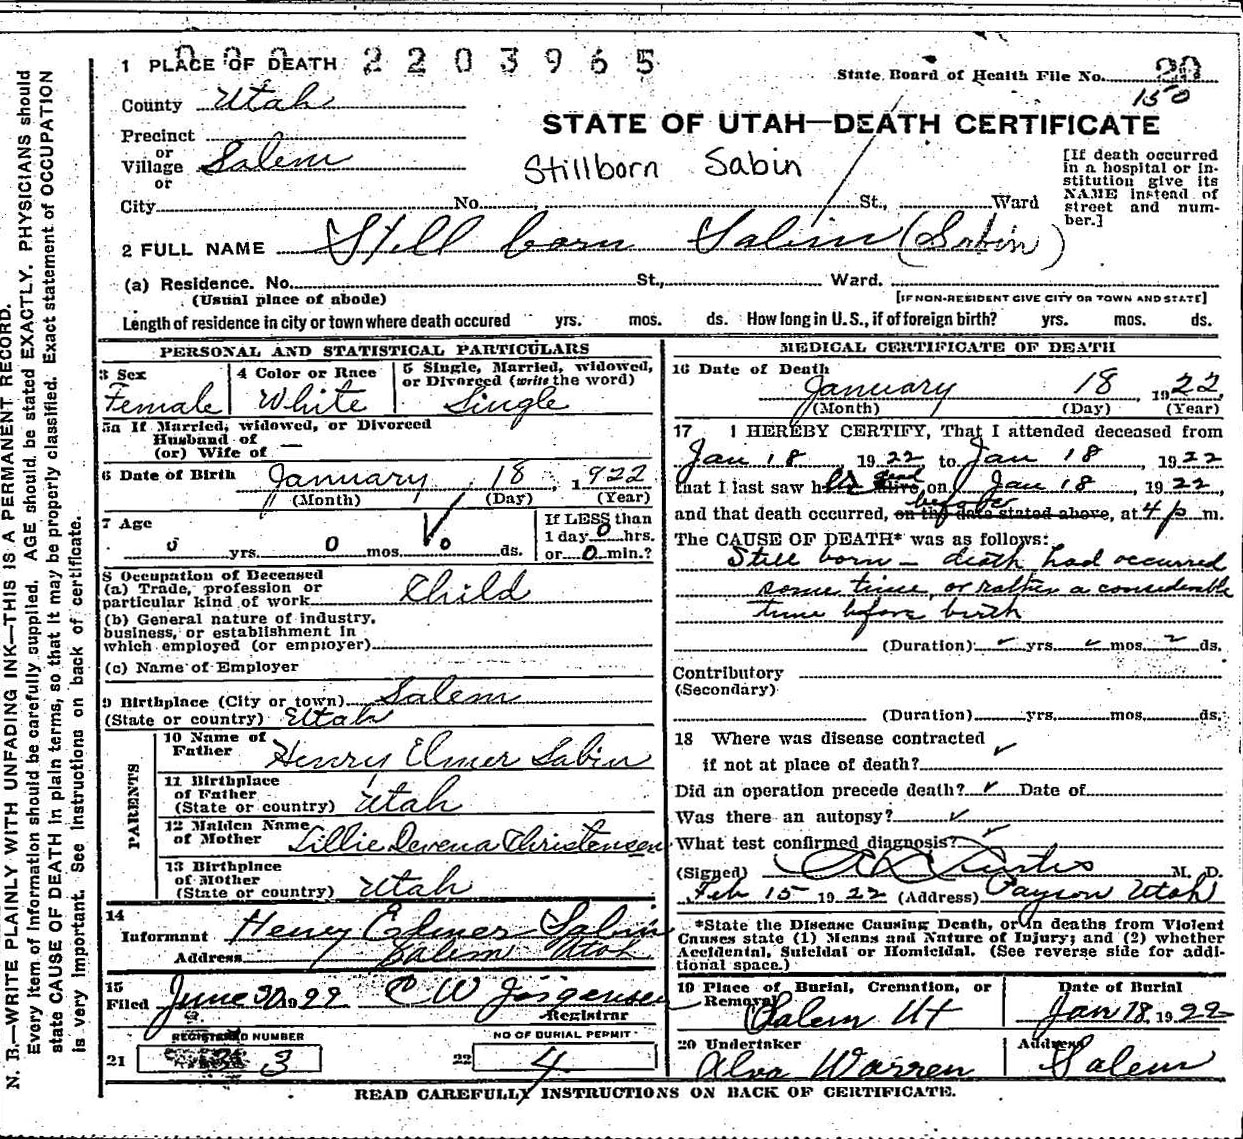 1 PLACE OF DEATH 2203965
State Board of Health File No. 20
150
County Utah
STATE OF UTAH—DEATH CERTIFICATE
Precinct
or
Village Salem
or
Stillborn Sabin
[If death occurred in a hospital or institution give its NAME instead of street and number.]
City No. St., Ward
2 FULL NAME Still born Sabin (Sabin)
(a) Residence. No. St., Ward.
(Usual place of abode) [IF NON-RESIDENT GIVE CITY OR TOWN AND STATE]
Length of residence in city or town where death occured yrs. mos. ds. How long in U.S., if of foreign birth? yrs. mos. ds.
PERSONAL AND STATISTICAL PARTICULARS
3 Sex
Female
4 Color or Race
White
5 Single, Married, widowed, or Divorced (write the word)
Single
5a If Married, widowed, or Divorced
Husband of
(or) Wife of —
6 Date of Birth January 18, 1922
(Month) (Day) (Year)
7 Age
0 yrs. 0 mos. 0 ds.
If LESS than
1 day 0 hrs.
or 0 min.?
8 Occupation of Deceased
(a) Trade, profession or
particular kind of work Child
(b) General nature of industry,
business, or establishment in
which employed (or employer)
(c) Name of Employer
9 Birthplace (City or town) Salem
(State or country) Utah
PARENTS
10 Name of
Father Henry Elmer Sabin
11 Birthplace
of Father
(State or country) Utah
12 Maiden Name
of Mother Lillie Devena Christensen
13 Birthplace
of Mother
(State or country) Utah
14
Informant Henry Elmer Sabin
Address Salem Utah
15
Filed June 30, 1922 C W Jorgensen
Registrar
REGISTERED NUMBER
21 3
NO OF BURIAL PERMIT
22 4
MEDICAL CERTIFICATE OF DEATH
16 Date of Death
January 18, 1922
(Month) (Day) (Year)
17 I HEREBY CERTIFY, That I attended deceased from
Jan 18, 1922 to Jan 18, 1922
that I last saw her dead alive on Jan 18, 1922,
before
and that death occurred, on the date stated above, at 4 p m.
The CAUSE OF DEATH* was as follows:
Still born — death had occurred
some time, or rather a considerable
time before birth
(Duration) yrs. mos. ds.
Contributory
(Secondary)
(Duration) yrs. mos. ds.
18 Where was disease contracted
if not at place of death?
Did an operation precede death? Date of
Was there an autopsy?
What test confirmed diagnosis?
(Signed) Curtis M. D.
Feb 15 1922 (Address) Payson Utah
*State the Disease Causing Death, or in deaths from Violent
Causes state (1) Means and Nature of Injury; and (2) whether
Accidental, Suicidal or Homicidal. (See reverse side for additional space.)
19 Place of Burial, Cremation, or
Removal
Salem Ut
Date of Burial
Jan 18, 1922
20 Undertaker
Alva Warren
Address
Salem
READ CAREFULLY INSTRUCTIONS ON BACK OF CERTIFICATE.
N. B.—WRITE PLAINLY WITH UNFADING INK—THIS IS A PERMANENT RECORD.
Every item of information should be carefully supplied. AGE should be stated EXACTLY. PHYSICIANS should
state CAUSE OF DEATH in plain terms, so that it may be properly classified. Exact statement of OCCUPATION
is very important. See instructions on back of certificate.